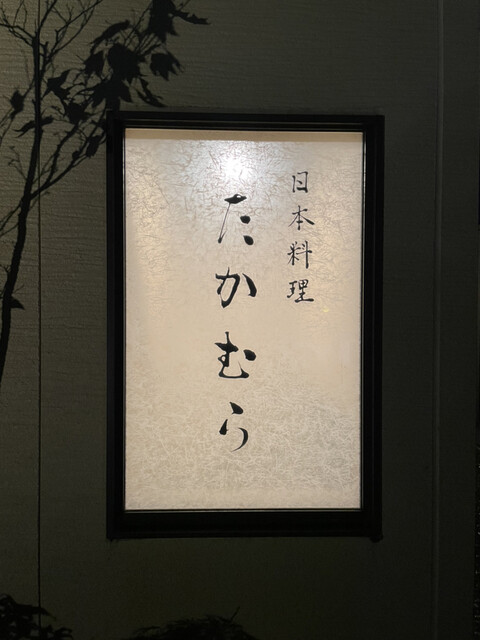 日本料理
たかむら